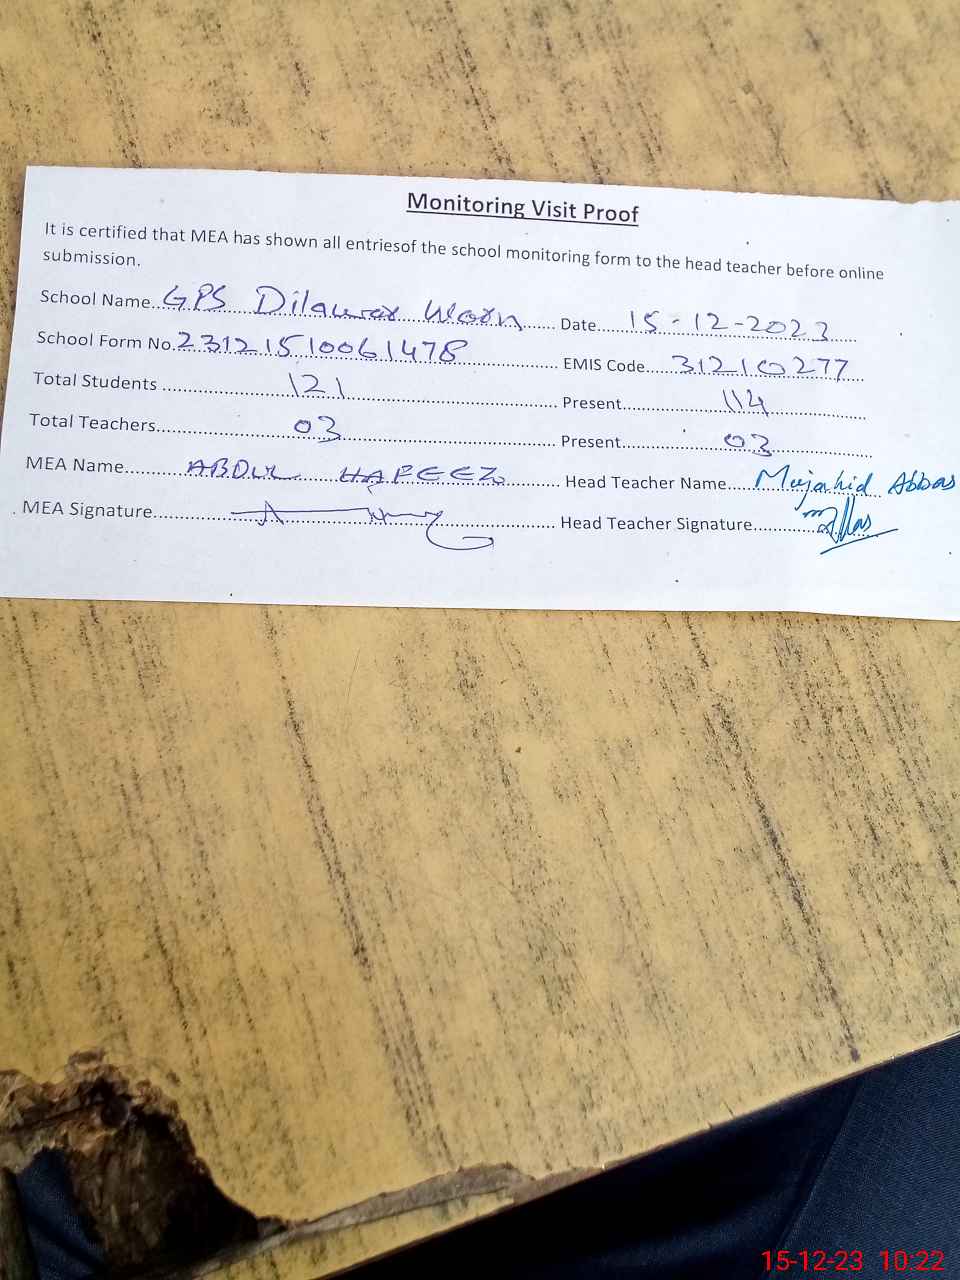 Monitoring Visit Proof
It is certified that MEA has shown all entriesof the school monitoring form to the head teacher before online
submission.
School Name...GPS Dilawar Warn...... Date.....15-12-2023.....
School Form No.23121510061478........ EMIS Code.....31210277...
Total Students .....121..... Present.....114.....
Total Teachers.....03..... Present.....03.....
MEA Name.....ABDUL HAFEEZ..... Head Teacher Name....Mujahid Abbas
MEA Signature..... Head Teacher Signature.....
15-12-23 10:22